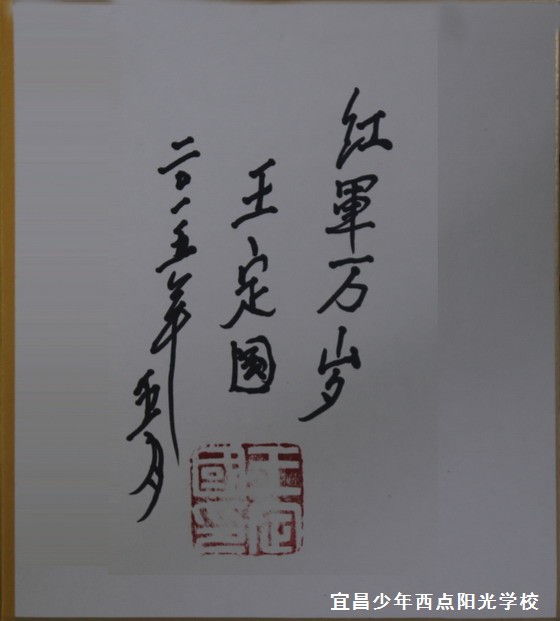 红軍万岁
王定國
二〇一五年五月
王定國印
宜昌少年西点阳光学校